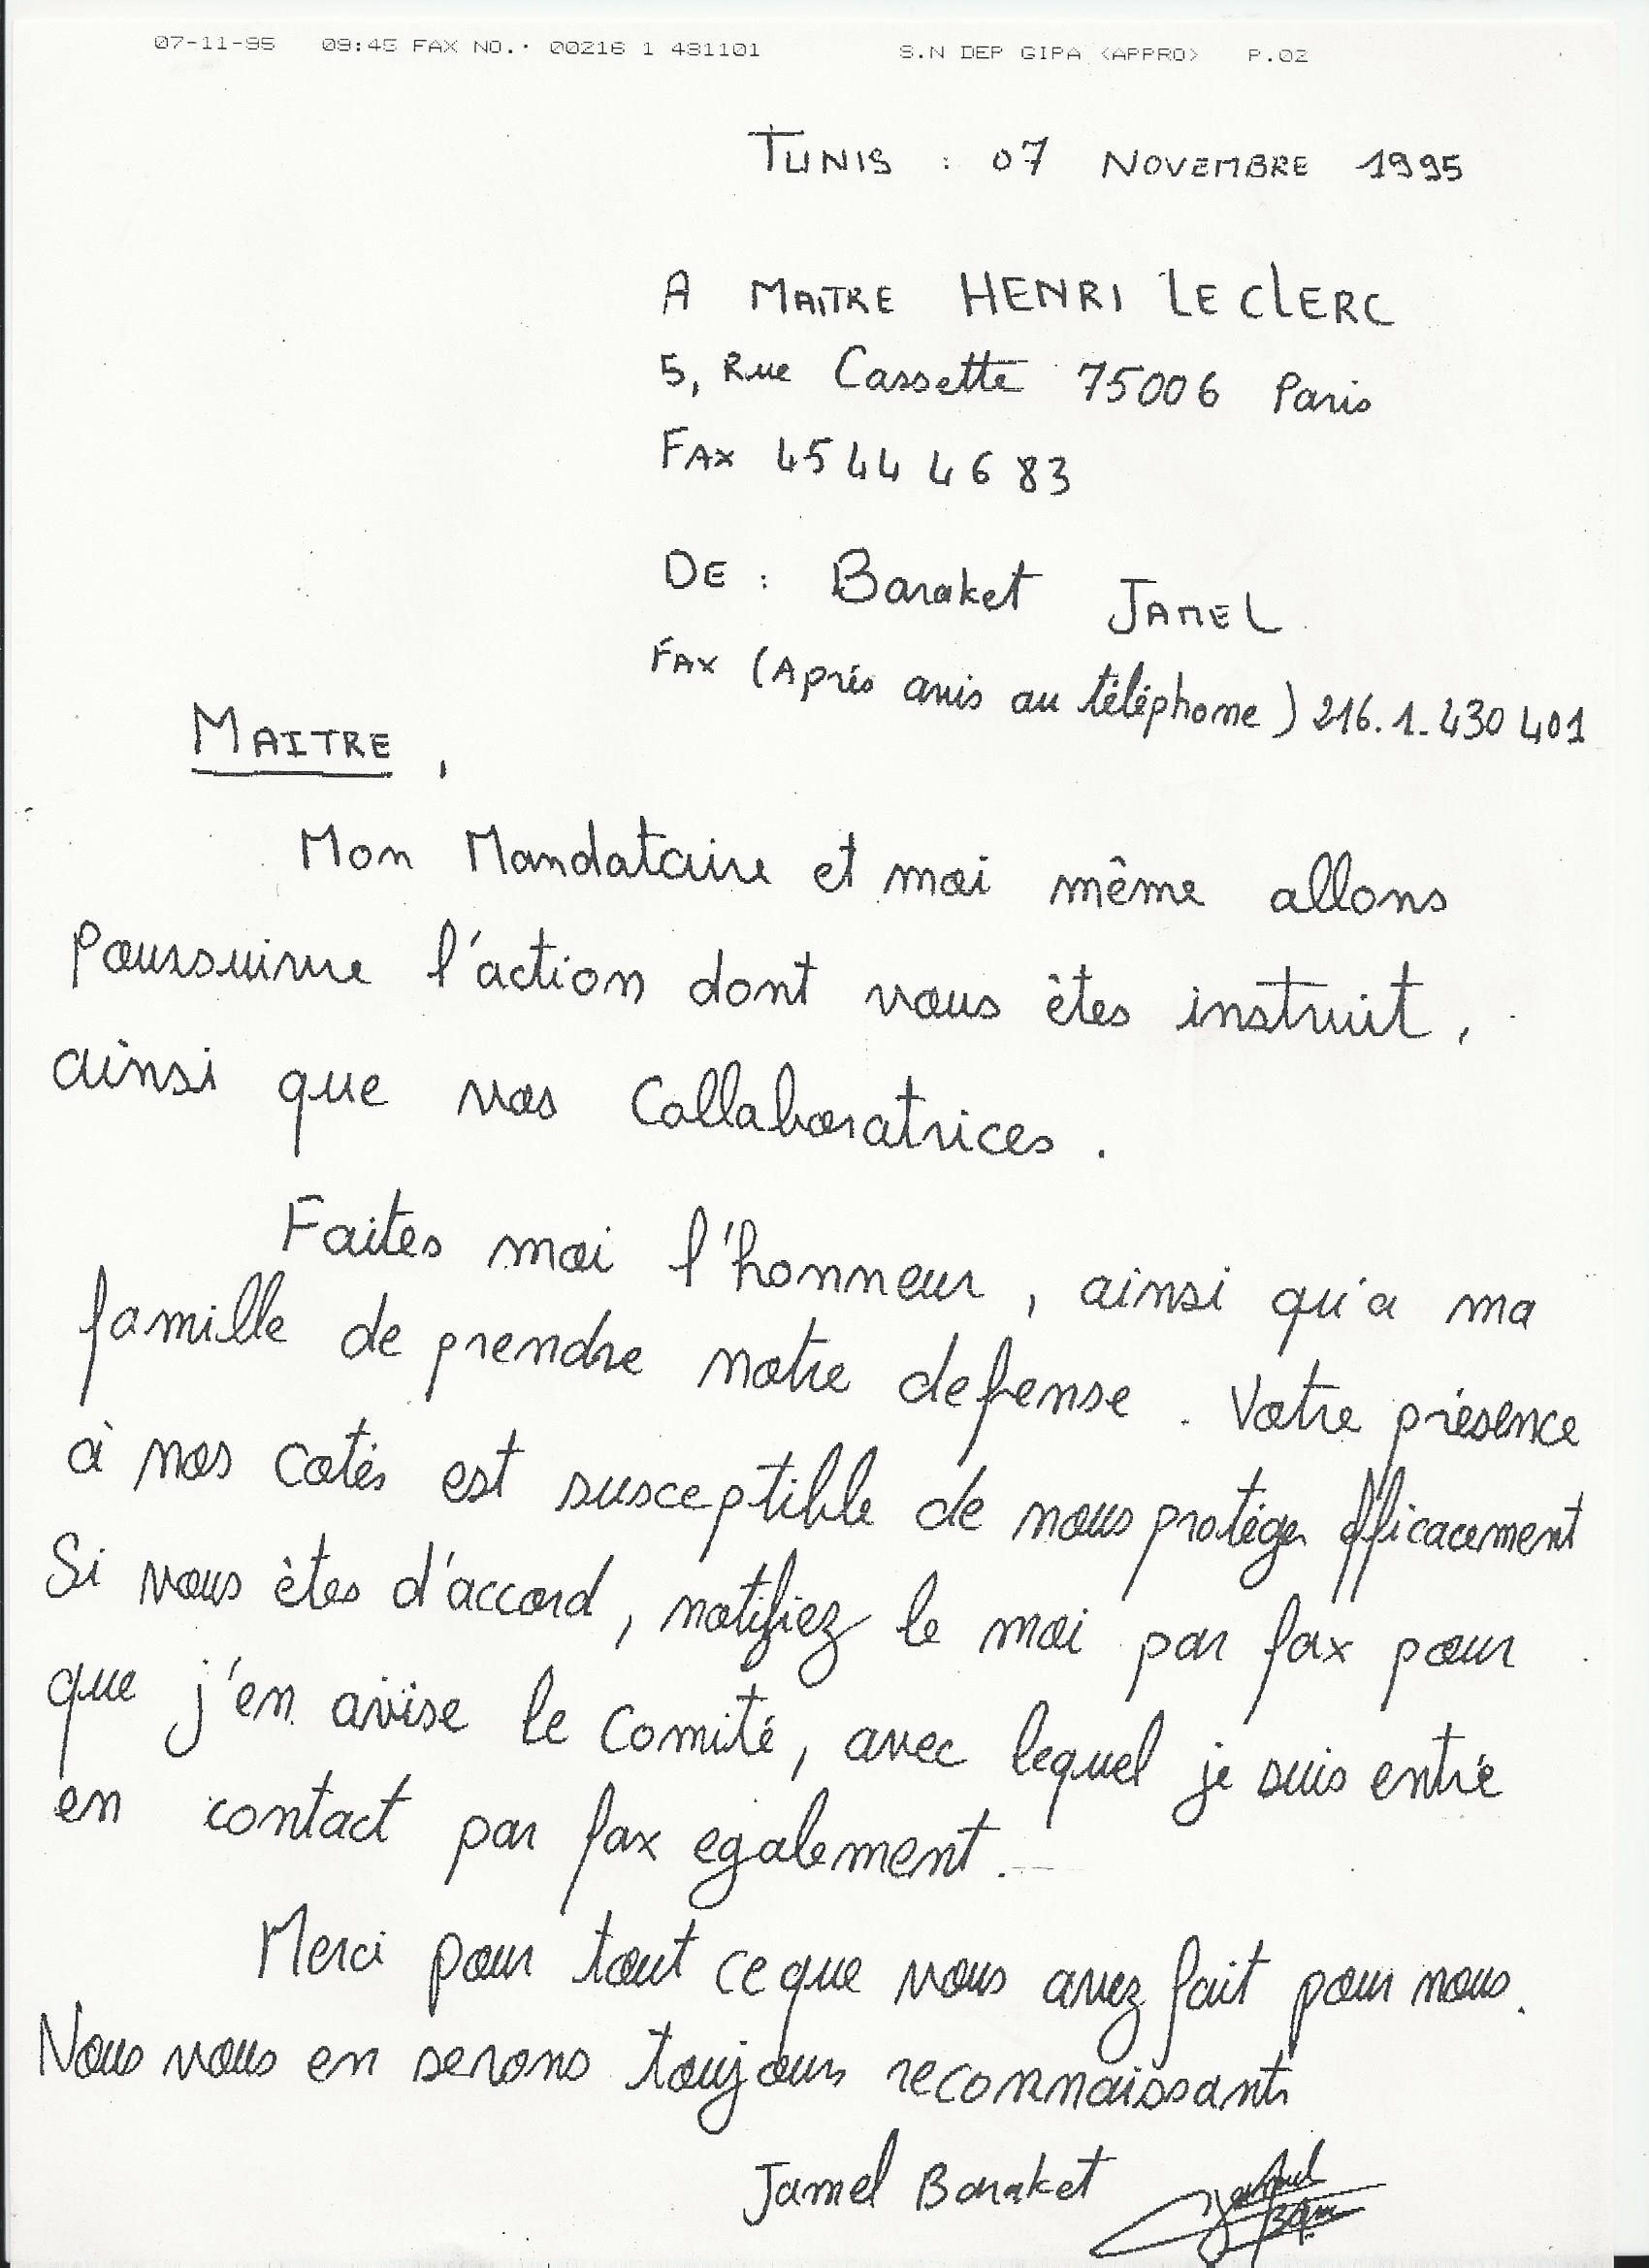 07-11-95 09:45 FAX NO.· 00216 1 431101 S.N DEP GIPA <APPRO> P.02
TUNIS : 07 NOVEMBRE 1995
A MAITRE HENRI LECLERC
5, Rue Cassette 75006 Paris
FAX 45 44 46 83
DE : Baraket JAMEL
FAX (Aprés avis au téléphone) 216.1.430 401
MAITRE,
Mon Mandataire et moi même allons
Poursuivre l'action dont vous êtes instruit,
ainsi que vos Collaboratrices.
Faites moi l'honneur, ainsi qu'a ma
famille de prendre notre defense. Votre présence
à nos cotés est susceptible de nous protéger éfficacement
Si vous êtes d'accord, notifiez le moi par fax pour
que j'en avise le Comité, avec lequel je suis entré
en contact par fax egalement.
Merci pour tout ce que vous avez fait pour nous.
Nous vous en serons toujours reconnaissants
Jamel Baraket